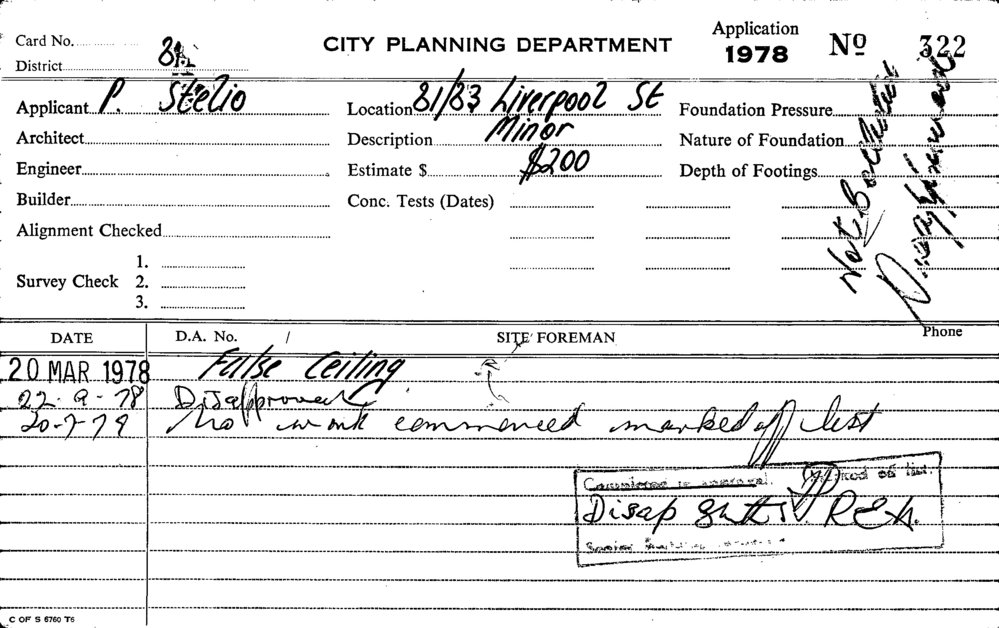 Card No.
District
CITY PLANNING DEPARTMENT
Application
1978
Nº 322
Applicant P. Stelio
Location 81/83 Liverpool St
Foundation Pressure
Architect
Description Minor
Nature of Foundation
Engineer
Estimate $ $200
Depth of Footings
Builder
Conc. Tests (Dates)
Alignment Checked
Survey Check
1.
2.
3.
Not
DATE
D.A. No. /
SITE FOREMAN
Phone
20 MAR 1978 False Ceiling
22-9-78 Disapproved
20-7-79 No work commenced marked off list
Completed as approval. Marked off list.
Disap
Senior Building
C OF S 6760 T6